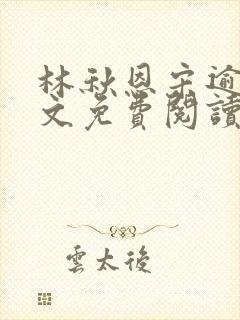 林秋恩宋逾
文免費閱讀
雲太後